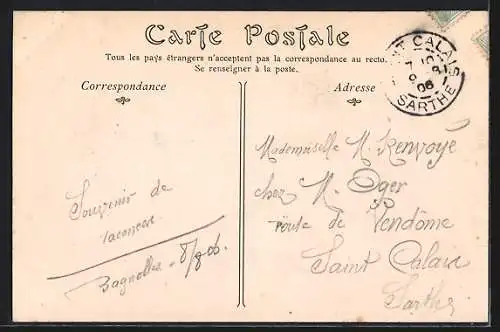 Carte Postale
Tous les pays étrangers n'acceptent pas la correspondance au recto.
Se renseigner à la poste.
Correspondance
Adresse
Souvenir de
Bagnolles, 8/8 06.
Mademoiselle M. Renvoyé
chez M. Oger
route de Vendôme
Saint Calais
Sarthe
ST CALAIS
06
SARTHE